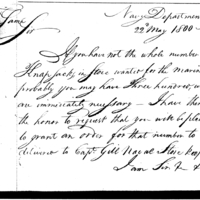 Navy Department
Same 22d May 1800
Sir
If you have not the whole number
Knapsacks in Store wanted for the marines
probably you may have three hundred, which
are immediately necessary – I have therefore
the honor to request that you will be pleased
to grant an order for that number to
deliver to Capt Gill Naval Store keeper
I am Sir &